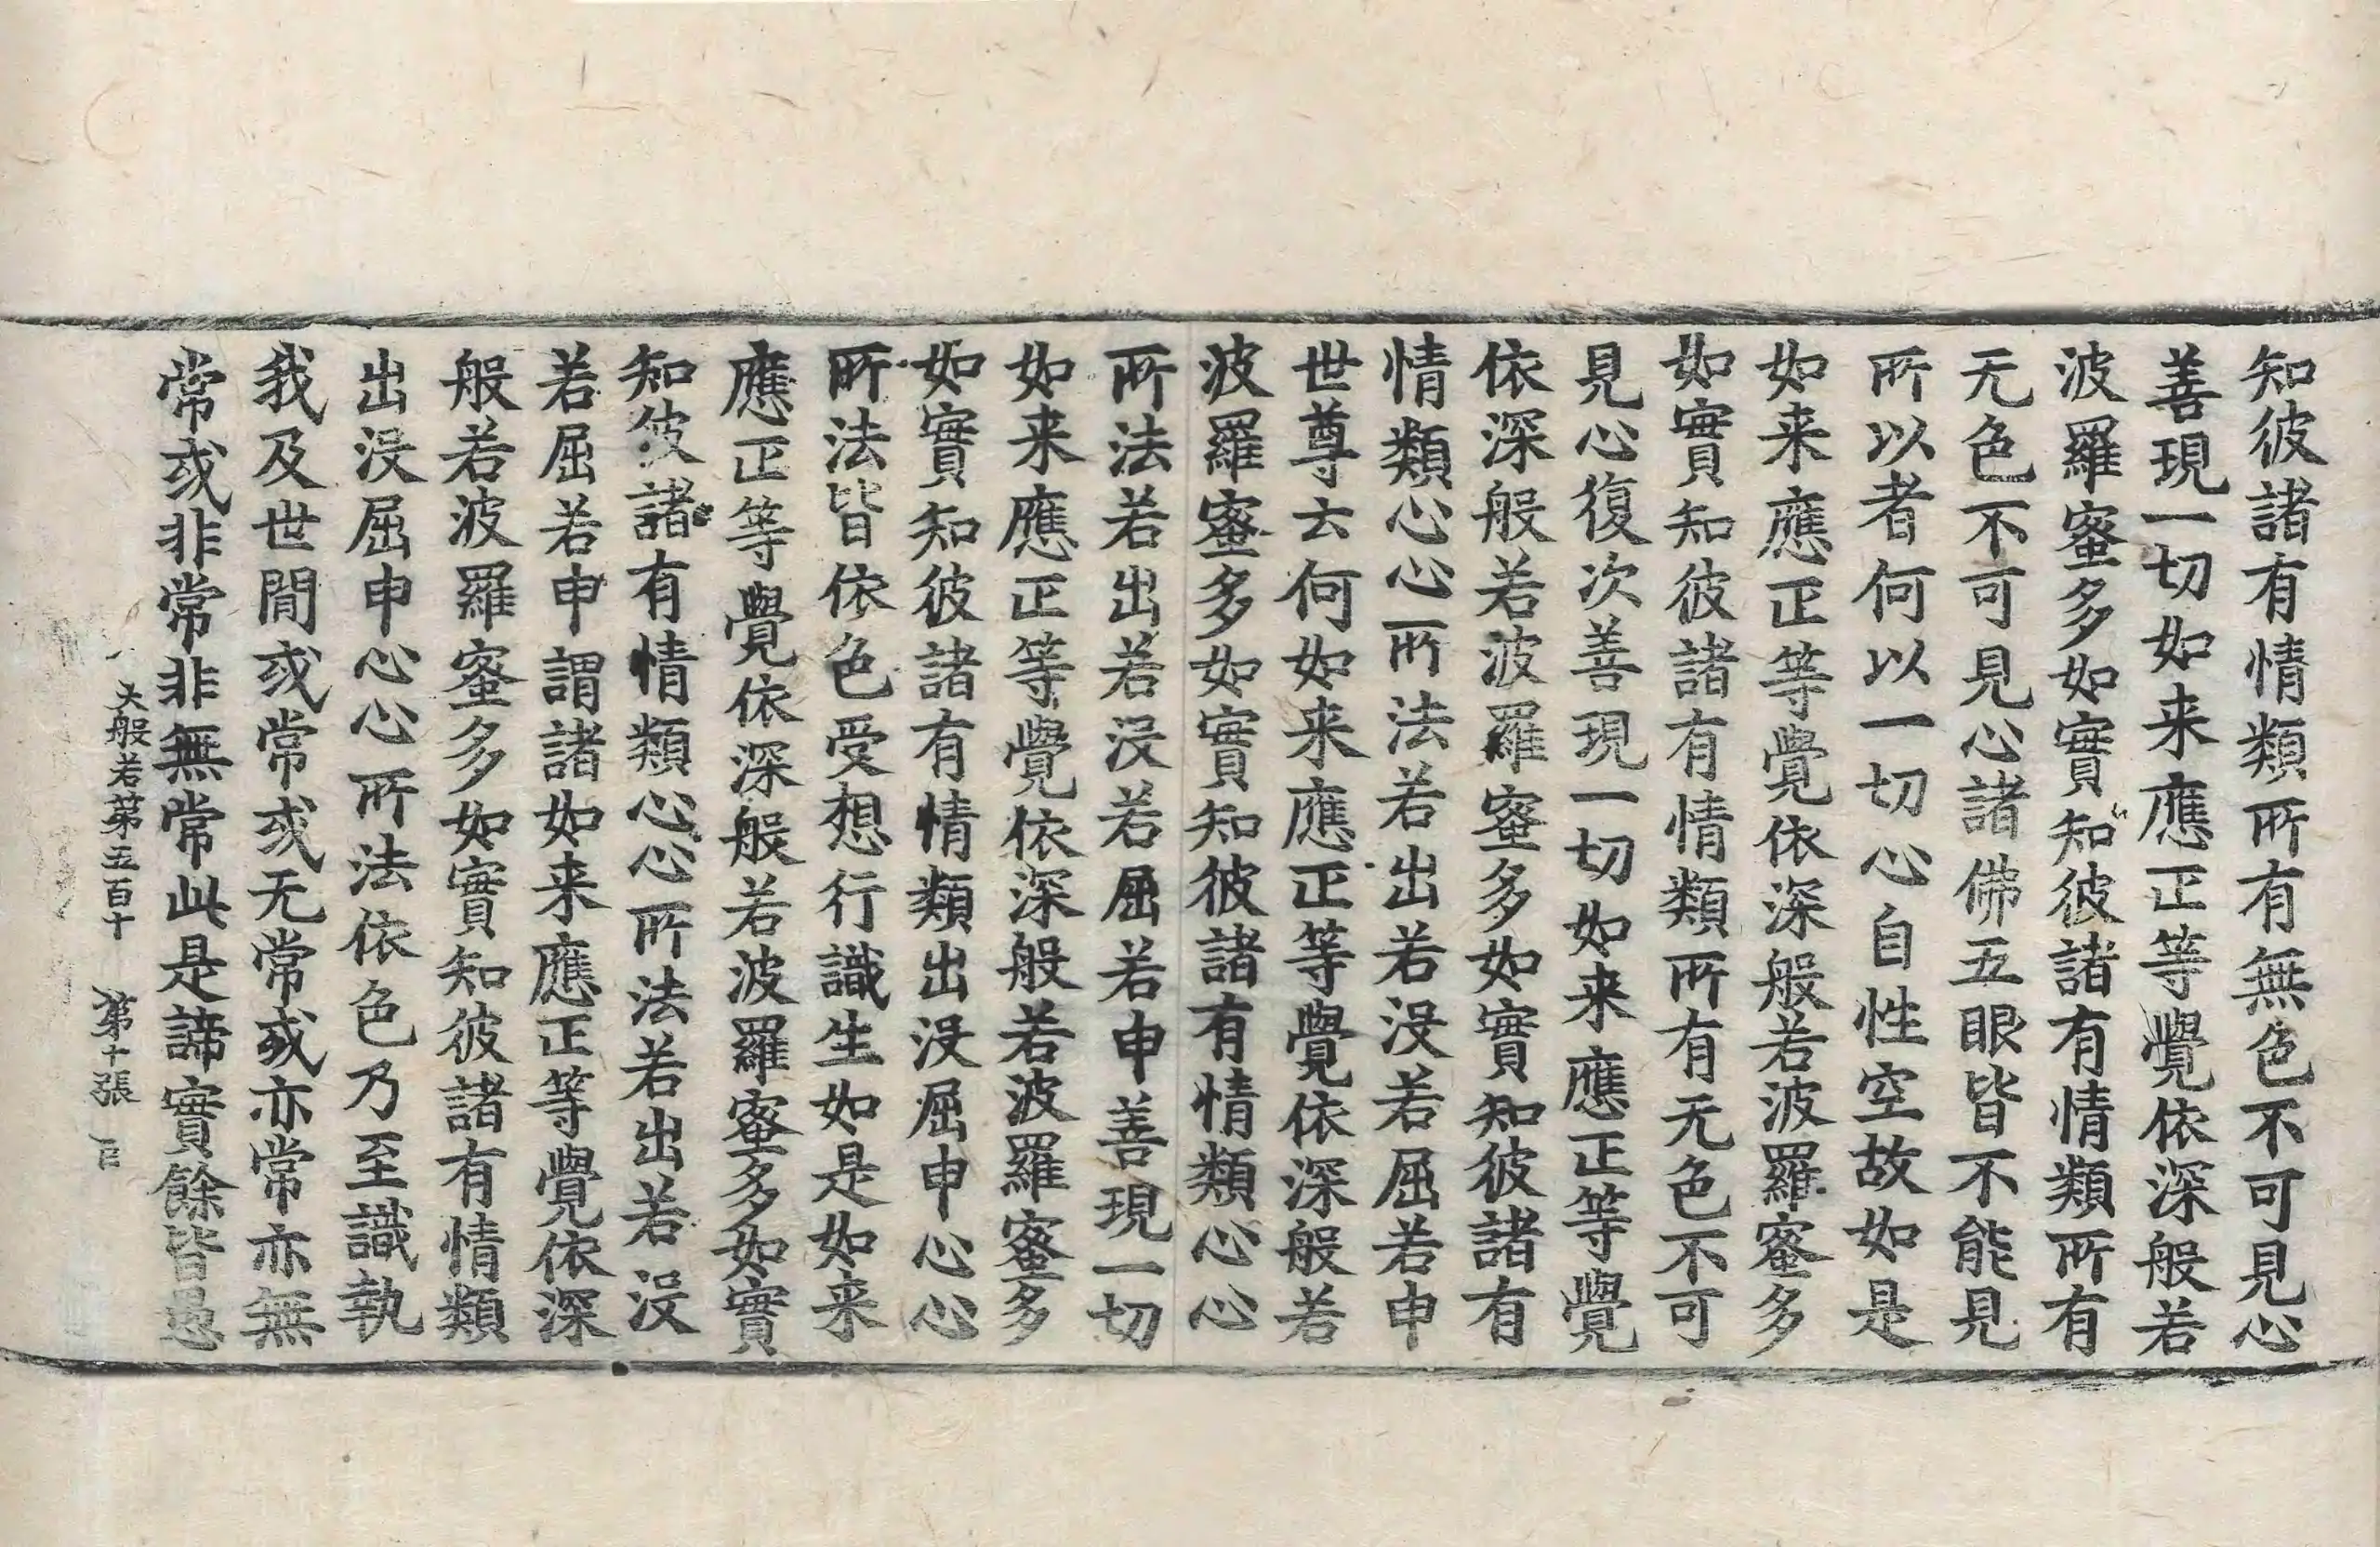 知彼諸有情類所有無色不可見心
善現一切如来應正等覺依深般若
波羅蜜多如實知彼諸有情類所有
无色不可見心諸佛五眼皆不能見
所以者何以一切心自性空故如是
如来應正等覺依深般若波羅蜜多
如實知彼諸有情類所有无色不可
見心復次善現一切如来應正等覺
依深般若波羅蜜多如實知彼諸有
情類心心所法若出若没若屈若申
世尊云何如来應正等覺依深般若
波羅蜜多如實知彼諸有情類心心
所法若出若没若屈若申善現一切
如来應正等覺依深般若波羅蜜多
如實知彼諸有情類出没屈申心心
所法皆依色受想行識生如是如来
應正等覺依深般若波羅蜜多如實
知彼諸有情類心心所法若出若没
若屈若申謂諸如来應正等覺依深
般若波羅蜜多如實知彼諸有情類
出没屈申心心所法依色乃至識執
我及世間或常或无常或亦常亦無
常或非常非無常此是諦實餘皆愚
大般若第五百十 第十張